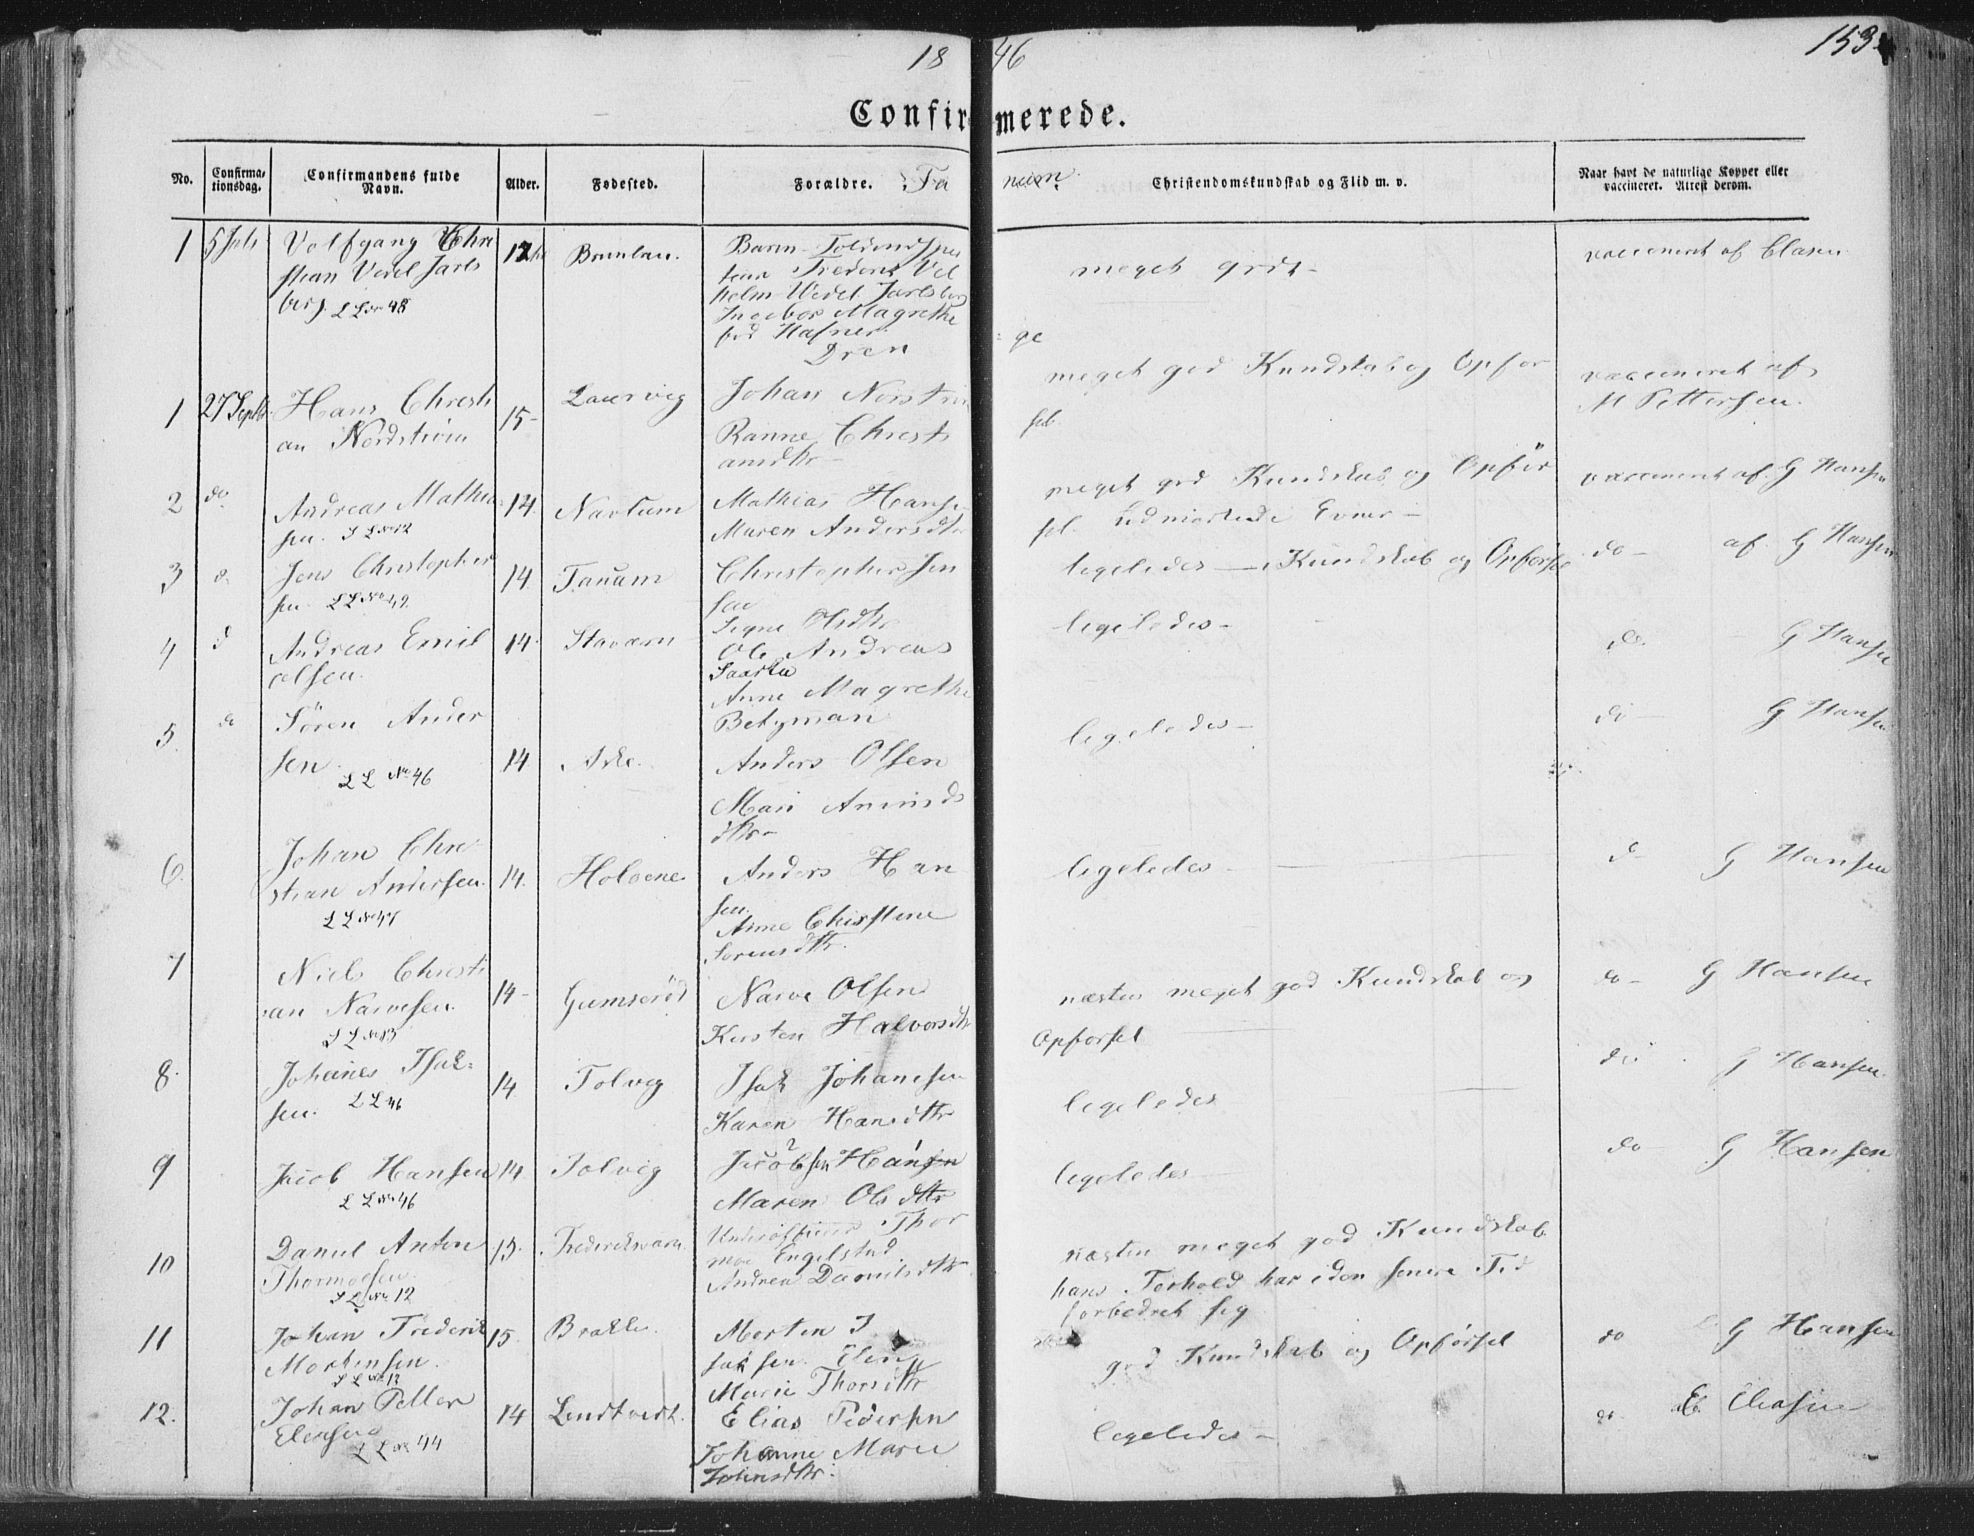 18 46
153
Confirmerede.
No.
Confirma-
tionsdag.
Confirmandens fulde
Navn.
Alder.
Fødested.
Forældre.
Christendomskundskab og Flid m. v.
Naar havt de naturlige Kopper eller
vaccineret. Attest derom.
1
Volfgang Chri
stian Vedel Jarls
berg. L L No 48
Fredrik Vil
helm Wedel Jarlsberg
Ingebor Magrethe
fød Hafner
meget godt
vaccineret af Clasen
Dren
ge
1 27 Septb
Hans Christi
an Nordstrøm
15
Laurvig
Johan Norstrøm
Christi
ansdtr
meget god Kundskab og Opfør
sel.
vaccineret af
M Pettersen.
2 do
Andreas Mathia
sen. L L No 12
14.
Navlum
Mathias Hanse
Maren Andersdtr
meget god Kundskab og Opfør
sel. udmerkede Evner
vaccineret af G Hansen
3
Jens Christopher
sen. L L No 49.
14.
Tanum
Christopher Jen
sen
Signe Olsdtr
ligeledes — Kundskab og Opførsel
do af G Hansen
4
Andreas Emil
olsen.
14.
Staværn
Ole Andreas
Anne Magrethe
ligeledes
do. G Hansen
5. do
Sören Ander
sen.
L L No 46
14
Aske.
Anders Olsen
Mari
dtr
ligeledes
do G Hansen
6.
Johan Chri
stian Andersen.
L L No 47
14.
Holvene
Anders Han
sen.
Anne Christine
Sorensdtr.
ligeledes
do G Hansen
7
Niels Christi
an Narvesen.
L L No 83
14
Gumserød
Narve Olsen
Kirsten Halvorsdtr
næsten meget god Kundskab og
Opforsel
do G Hansen
8.
Johanes Isak-
sen. L L 46
14
Tolvig
Isak Johanesen
Karen Hansdtr
ligeledes
do G Hansen
9
Jacob Hansen
L L No 46
14.
Tolvig
Maren Olsdtr
ligeledes
do G Hansen
10
Daniel Anton
Thormoesen
L L No 12
15.
Frederiksværn
Underofficier Thor
moe Engelstad.
Andrea Danielsdtr
næsten meget god Kundskab
hans Forhold har i den senere Tid
forbedret sig
11
Johan Frederik
Mortensen.
L L No 12
15.
Brække.
Morten I
saksen.
Marie Thorsdtr
god Kundskab og Opførsel
do G Hansen
12.
Johan Petter
Eleasen
L L No 44
14
Lundtvedt.
Elias Pedersen
Johanne Marie
Johnsdtr.
ligeledes
do. Cleasen